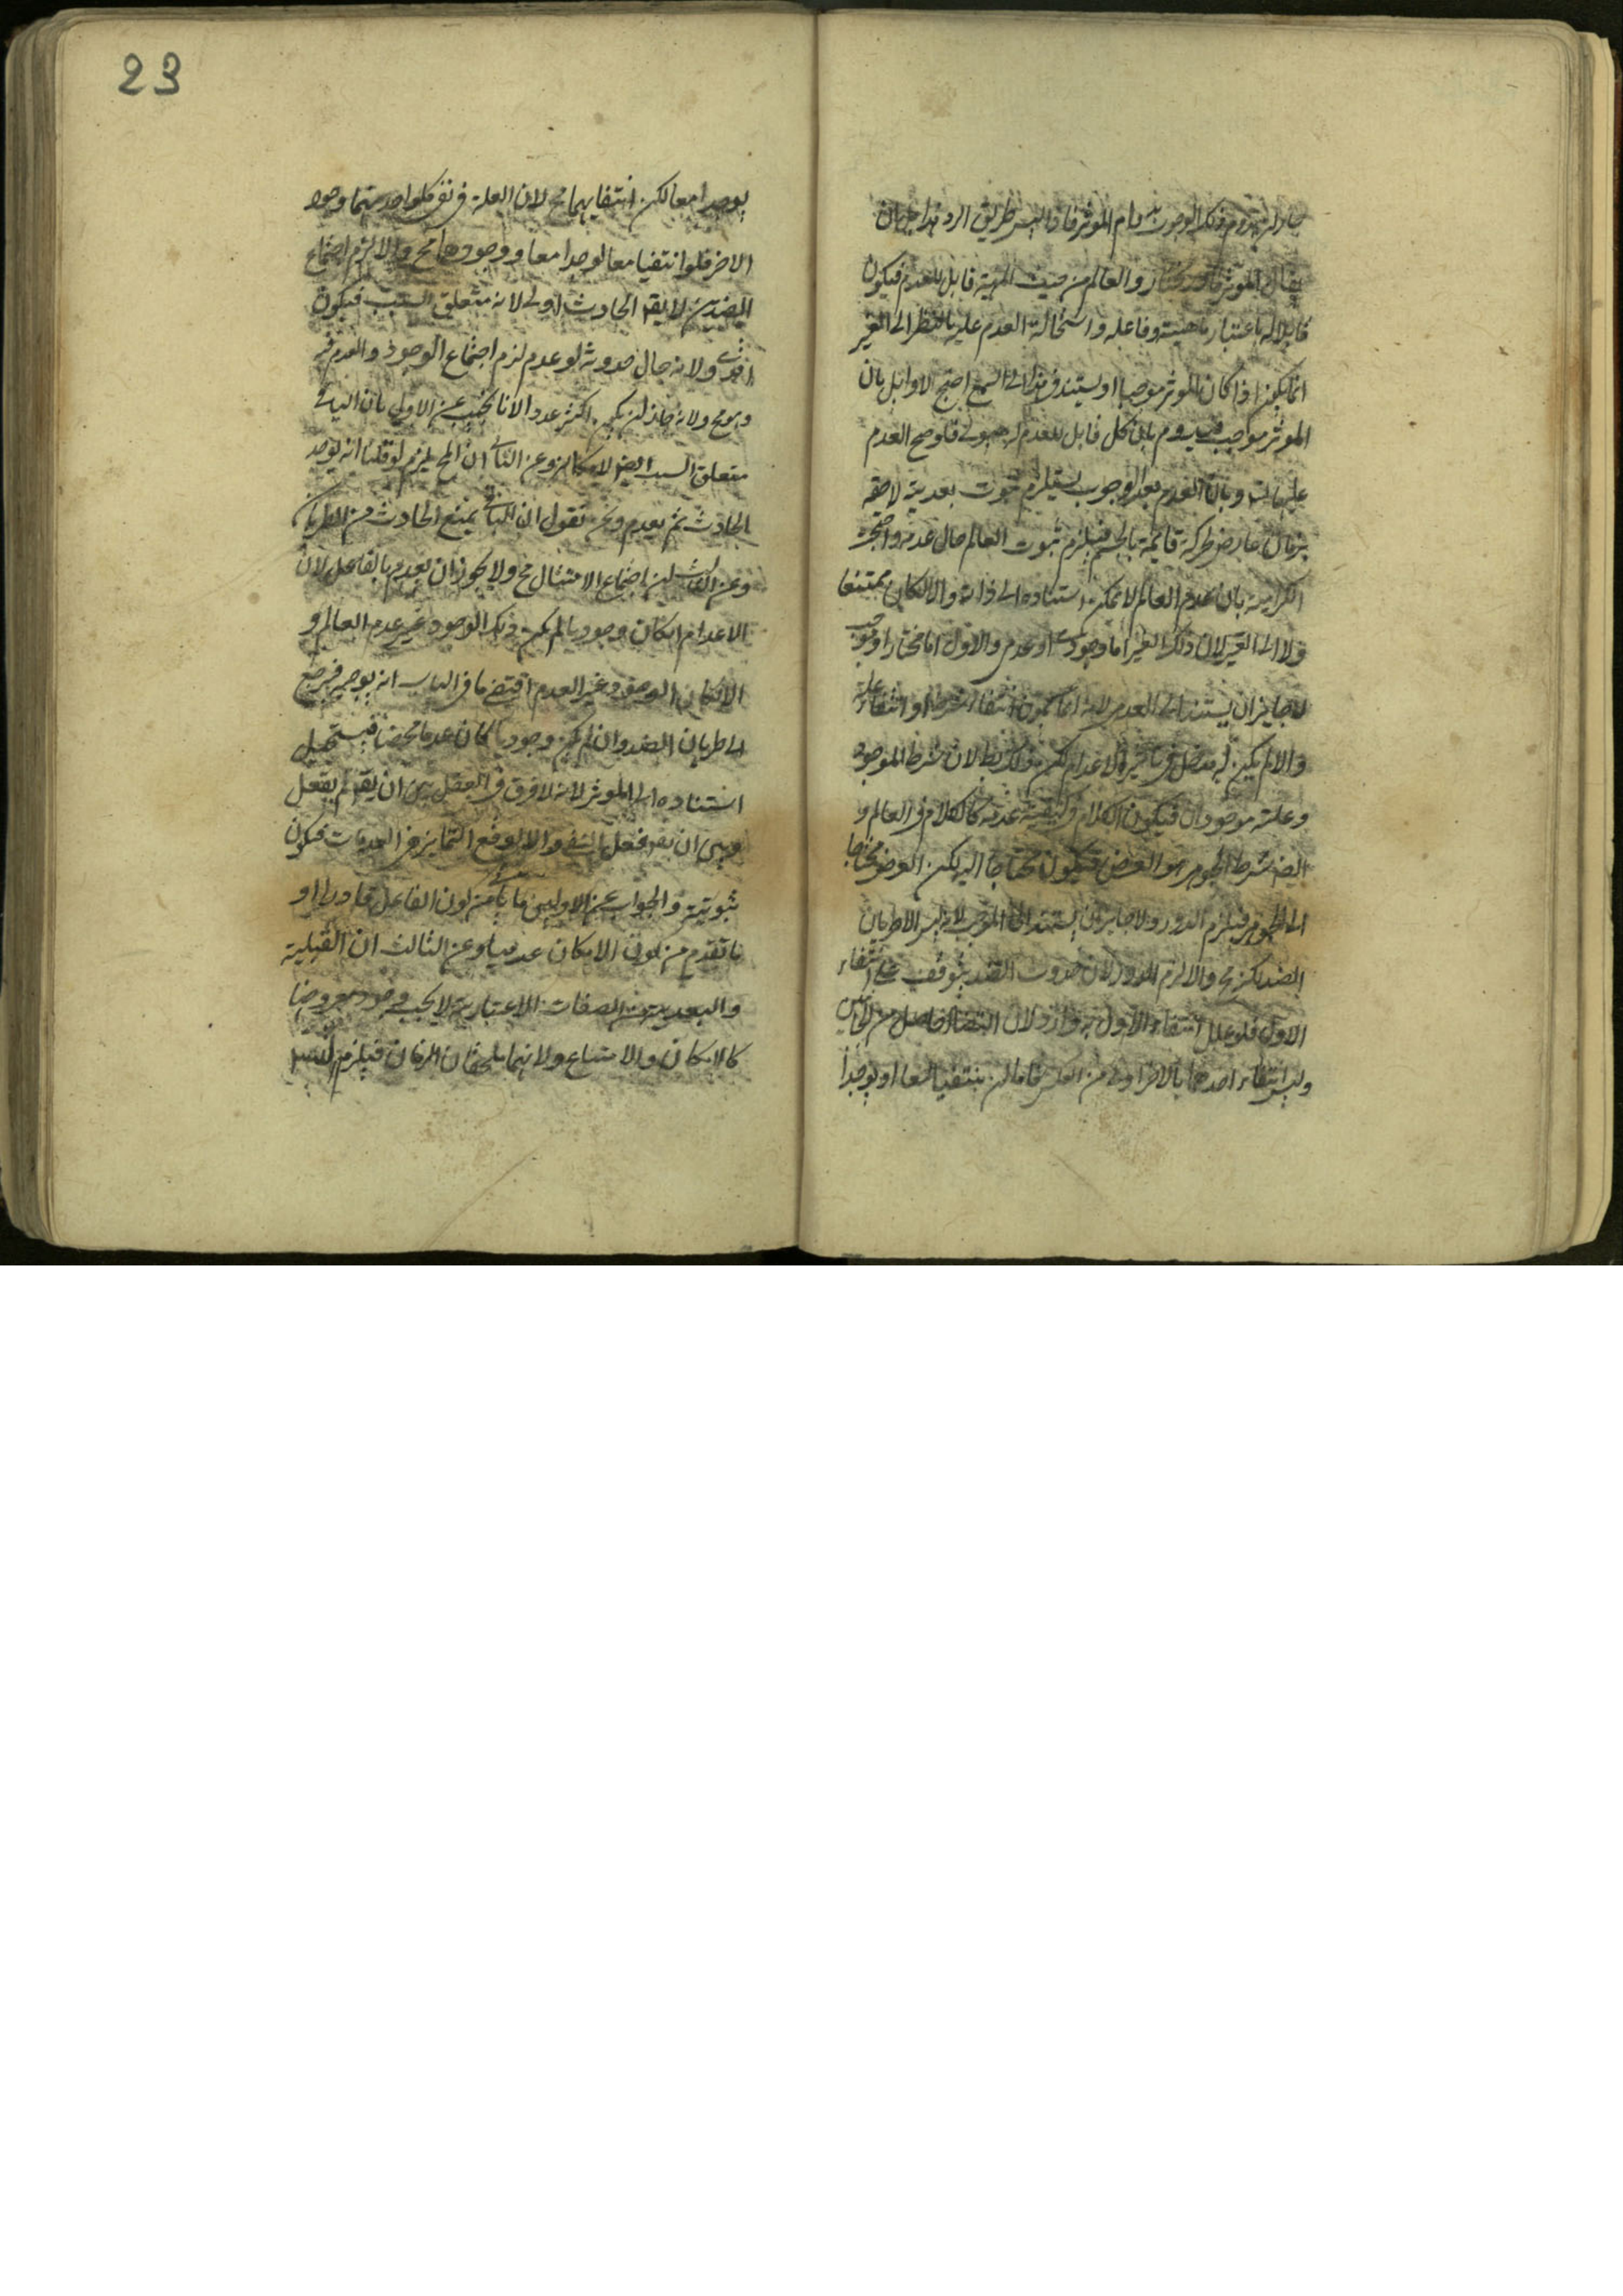 جاء له يدوم ذلك الوجوب بدوام الموثر فاذا ليس طريق الرد هذا بل بان
يقال الموثر قادر مختار والعالم من حيث المهية قابل للعدم فيكون
قابلا له باعتبار ماهيته وفاعله واستحالة العدم عليه بالنظر الى الغير
انما يكون اذا كان الموثر موجبا او يستند في هذا الى السمع احتج الاوايل بان
الموثر موجب فيدوم بان كل قابل للعدم له هيولى فلو صح العدم
عليها لت وبان العدم بعد الوجوب يستلزم ثبوت بعدية لاحقة
بزمان عارض لحركة قائمة بالجسم فيلزم ثبوت العالم حال عدمه واحتجت
الكرامية بان عدم العالم لا يمكن استناده الى ذاته والا لكان ممتنعا
ولا الى الغير لان ذلك الغير اما وجودى او عدمى والاول اما مختار او موجب
لا جايز ان يستند الى العدمى لانه اما يكون انتفاء الشرط او انتفاء علة
والا لم يكن له مدخل فى تاثير الاعدام لكن ذلك بط لان شرط الموجود
وعلته موجودان فيكون الكلام فى كيفية عدمه كالكلام فى العالم و
ايضا شرط الجوهر هو العرض فيكون محتاجا اليه لكن العرض محتاجا
الى الجوهر فيلزم الدور ولا جايز ان يستند الى الموجب لانه ليس الا طريان
الضد لكنه مح والا لزم الدور لان حدوث الضد يتوقف على انتفاء
الاول فلو علل انتفاء الاول به دار ولان التضاد حاصل من الجانبين
وليس انتفاء احدهما بالاخر اولى من العكس فاما ان ينتفيا معا او يوجدا
23
يوجدا معا لكن انتفايهما مح لان العلة فى نفى كل واحد منهما وجود
الاخر فلو انتفيا معا لوجدا معا ووجودهما مح والا لزم اجتماع
الضدين لا يقم الحادث اولى لانه متعلق السبب فيكون
اقوى ولانه حال حدوثه لو عدم لزم اجتماع الوجود والعدم فيه
وهو مح ولانه جاز ان يكون اكثر عددا لانا نجيب عن الاول بان الباقى
متعلق السبب ايضا لامكانه وعن الثانى ان المح يلزم لو قلنا انه يوجد
الحادث ثم يعدم ونحن نقول ان الباقى يمنع الحادث من الطريان
وعن الثالث ان اجتماع الامثال مح ولا يجوز ان يعدم بالفاعل لان
الاعدام ان كان وجوديا لم يكن ذلك الوجود غير عدم العالم و
الا كان الوجود غير العدم اقتضى ما فى الباب انه يوجبه فيرجع
الى طريان الضد وان لم يكن وجوديا كان عدما محضا فيستحيل
استناده الى الموثر لانه لا فرق فى العقل بين ان يقم لم يفعل
وبين ان يقم فعل النفى والا لوقع التمايز فى العدمات فيكون
ثبوتية والجواب عن الاولين ما ياتى من كون الفاعل قادرا او
ما تقدم من كون الامكان عدميا وعن الثالث ان القبلية
والبعدية من الصفات الاعتبارية لا يجب وجود معروضها
كالامكان والامتناع ولانهما يلحقان الزمان فيلزم التسلسل